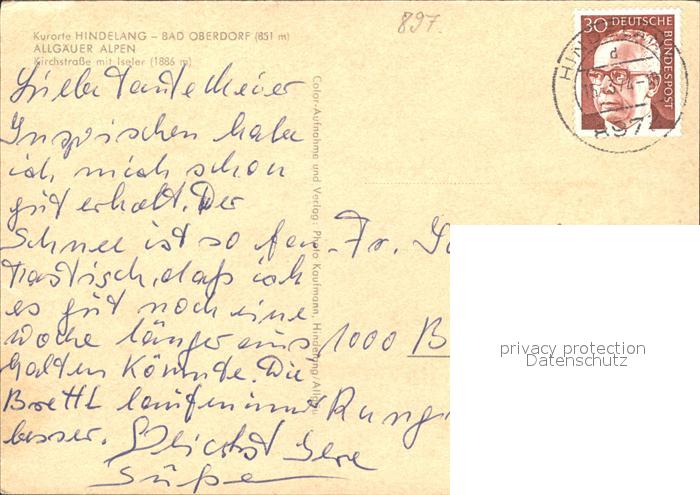 897.
Kurorte HINDELANG – BAD OBERDORF (851 m)
ALLGÄUER ALPEN
Kirchstraße mit Iseler (1886 m)
30 DEUTSCHE
BUNDESPOST
HINDELANG
d
897
Color-Aufnahme und Verlag: Photo Kaufmann, Hindelang/Allgäu
Liebe Tante Meier
Inzwischen habe
ich mich schon
gut erholt. Der
Schnee ist so fan-
tastisch, daß ich
es gut noch eine
Woche länger aus
halten könnte. Die
Brettl laufen immer
besser. Herzlichst Ihre
Fr.
1000 B
privacy protection
Datenschutz